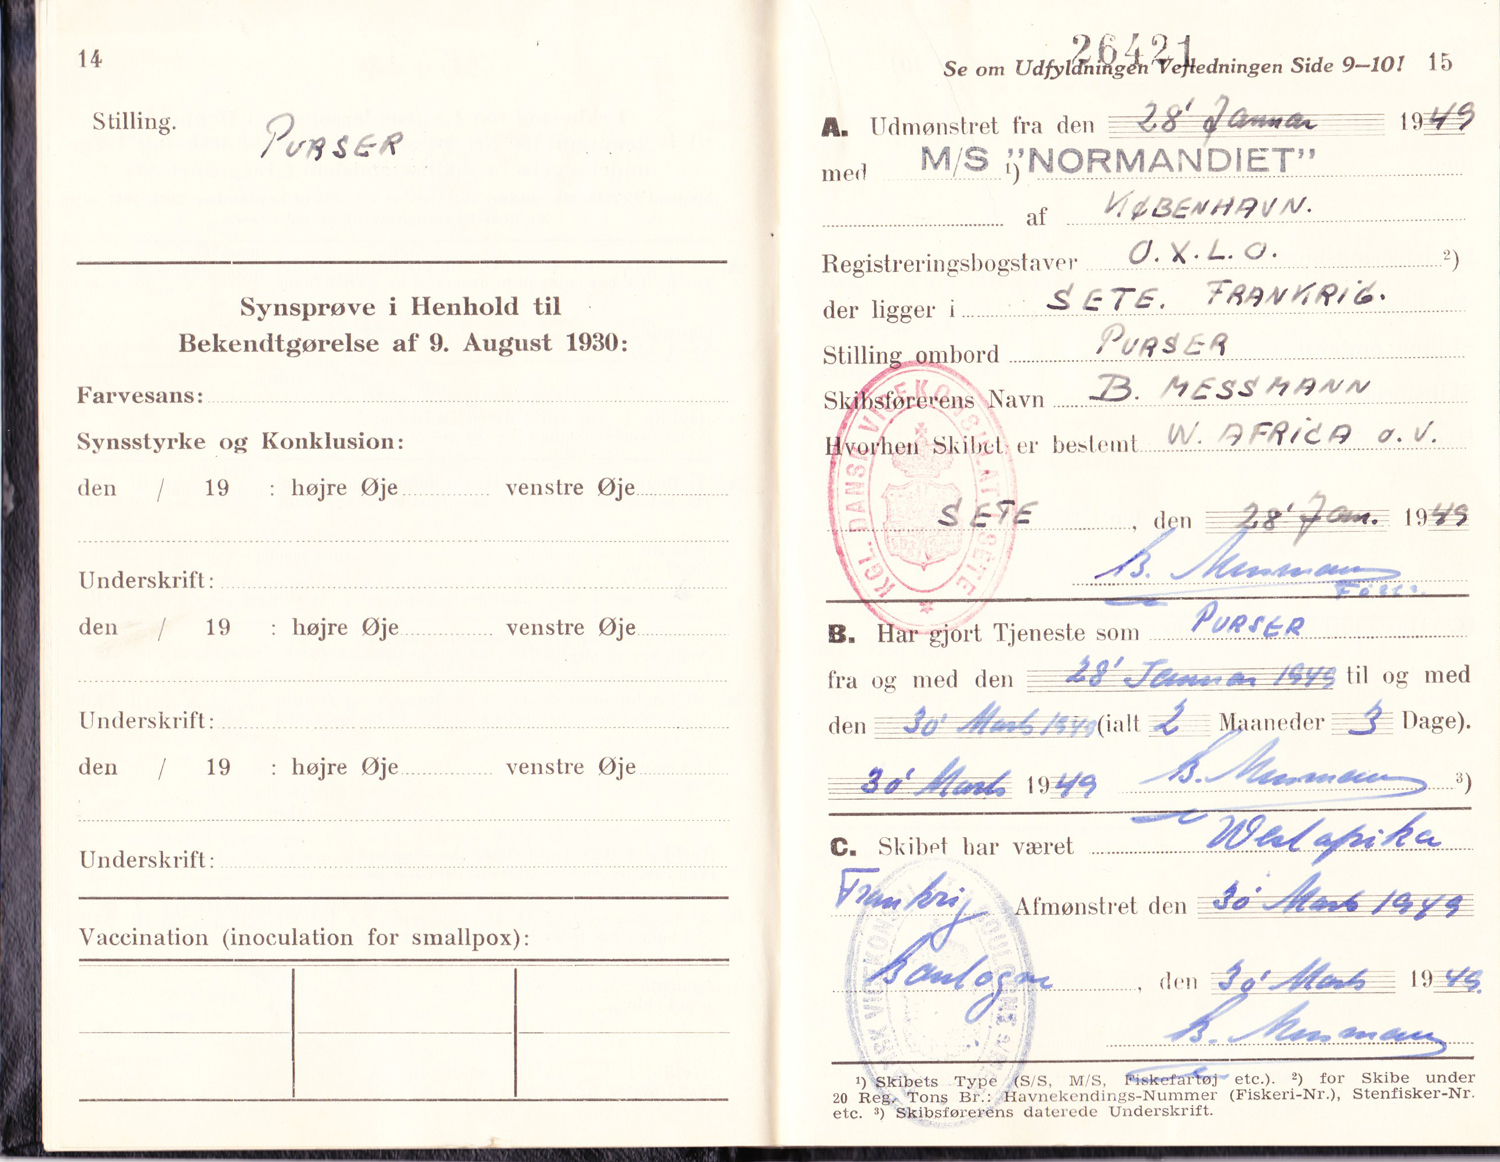 14
Stilling. PURSER
Synsprøve i Henhold til
Bekendtgørelse af 9. August 1930:
Farvesans:
Synsstyrke og Konklusion:
den / 19 : højre Øje venstre Øje
Underskrift:
den / 19 : højre Øje venstre Øje
Underskrift:
den / 19 : højre Øje venstre Øje
Underskrift:
Vaccination (inoculation for smallpox):
26421
Se om Udfyldningen Vejledningen Side 9—10! 15
A. Udmønstret fra den 28' Januar 1949
med M/S ¹) "NORMANDIET"
af KØBENHAVN.
Registreringsbogstaver O.X.L.O. ²)
der ligger i SETE. FRANKRIG.
Stilling ombord PURSER
Skibsførerens Navn B. MESSMANN
Hvorhen Skibet er bestemt W. AFRICA o.V.
KGL. DANSK VICEKONSULAT SETE
SETE, den 28' Jan. 1949
B. Messmann
B. Har gjort Tjeneste som PURSER
fra og med den 28' Januar 1949 til og med
den 30' Marts 1949 (ialt 2 Maaneder 3 Dage).
30' Marts 1949 B. Messmann ³)
C. Skibet har været Westafrika
Frankrig Afmønstret den 30' Marts 1949
Boulogne, den 30' Marts 1949
B. Messmann
¹) Skibets Type (S/S, M/S, Fiskefartøj etc.). ²) for Skibe under
20 Reg. Tons Br.: Havnekendings-Nummer (Fiskeri-Nr.), Stenfisker-Nr.
etc. ³) Skibsførerens daterede Underskrift.